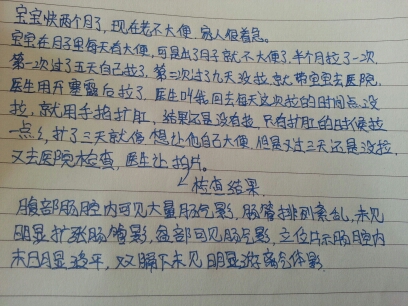 宝宝快两个月了,现在老不大便,家人很着急。
宝宝在月子里每天有大便,可是出了月子就不大便了,半个月拉了一次,
第一次过了五天自己拉了,第二次过了九天没拉就带宝宝去医院,
医生用开塞露后拉了,医生叫我回去每天这次拉的时间点没
拉,就用手指扩肛,结果还是没有拉,只有扩肛的时候拉
一点,扩了三天就停想让他自己大便,但是又过三天还是没拉,
又去医院检查,医生让拍片。
检查结果
腹部肠腔内可见大量肠气影,肠管排列紊乱,未见
明显扩张肠管影,盆部可见肠气影,立位片示肠腔内
未见明显液平,双膈下未见明显游离气体影.